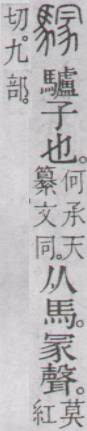 驢子也。何承天
纂文同。从馬。冡聲。莫紅
切。九部。